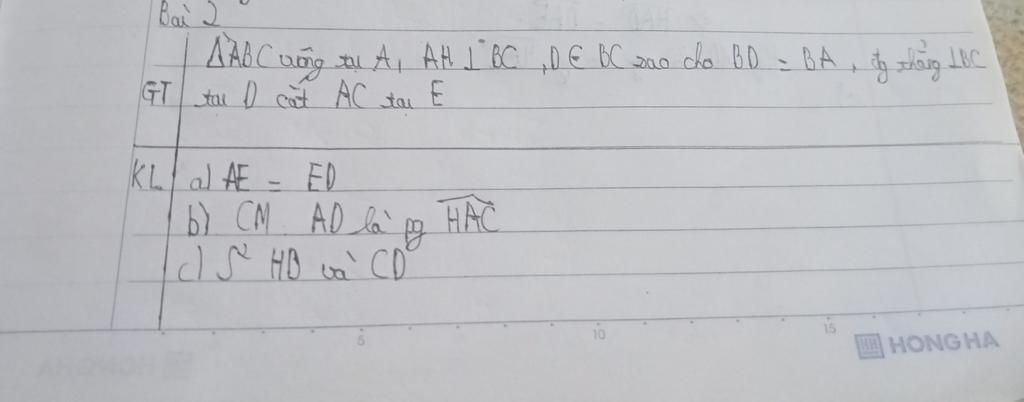 Bài 2
ΔABC vuông tại A, AH ⊥ BC, D ∈ BC sao cho BD = BA, đg thẳng ⊥BC
GT tại D cắt AC tại E
KL a) AE = ED
b) CM AD là pg HAC
c) S² HD và CD
5 10 15
HONG HA